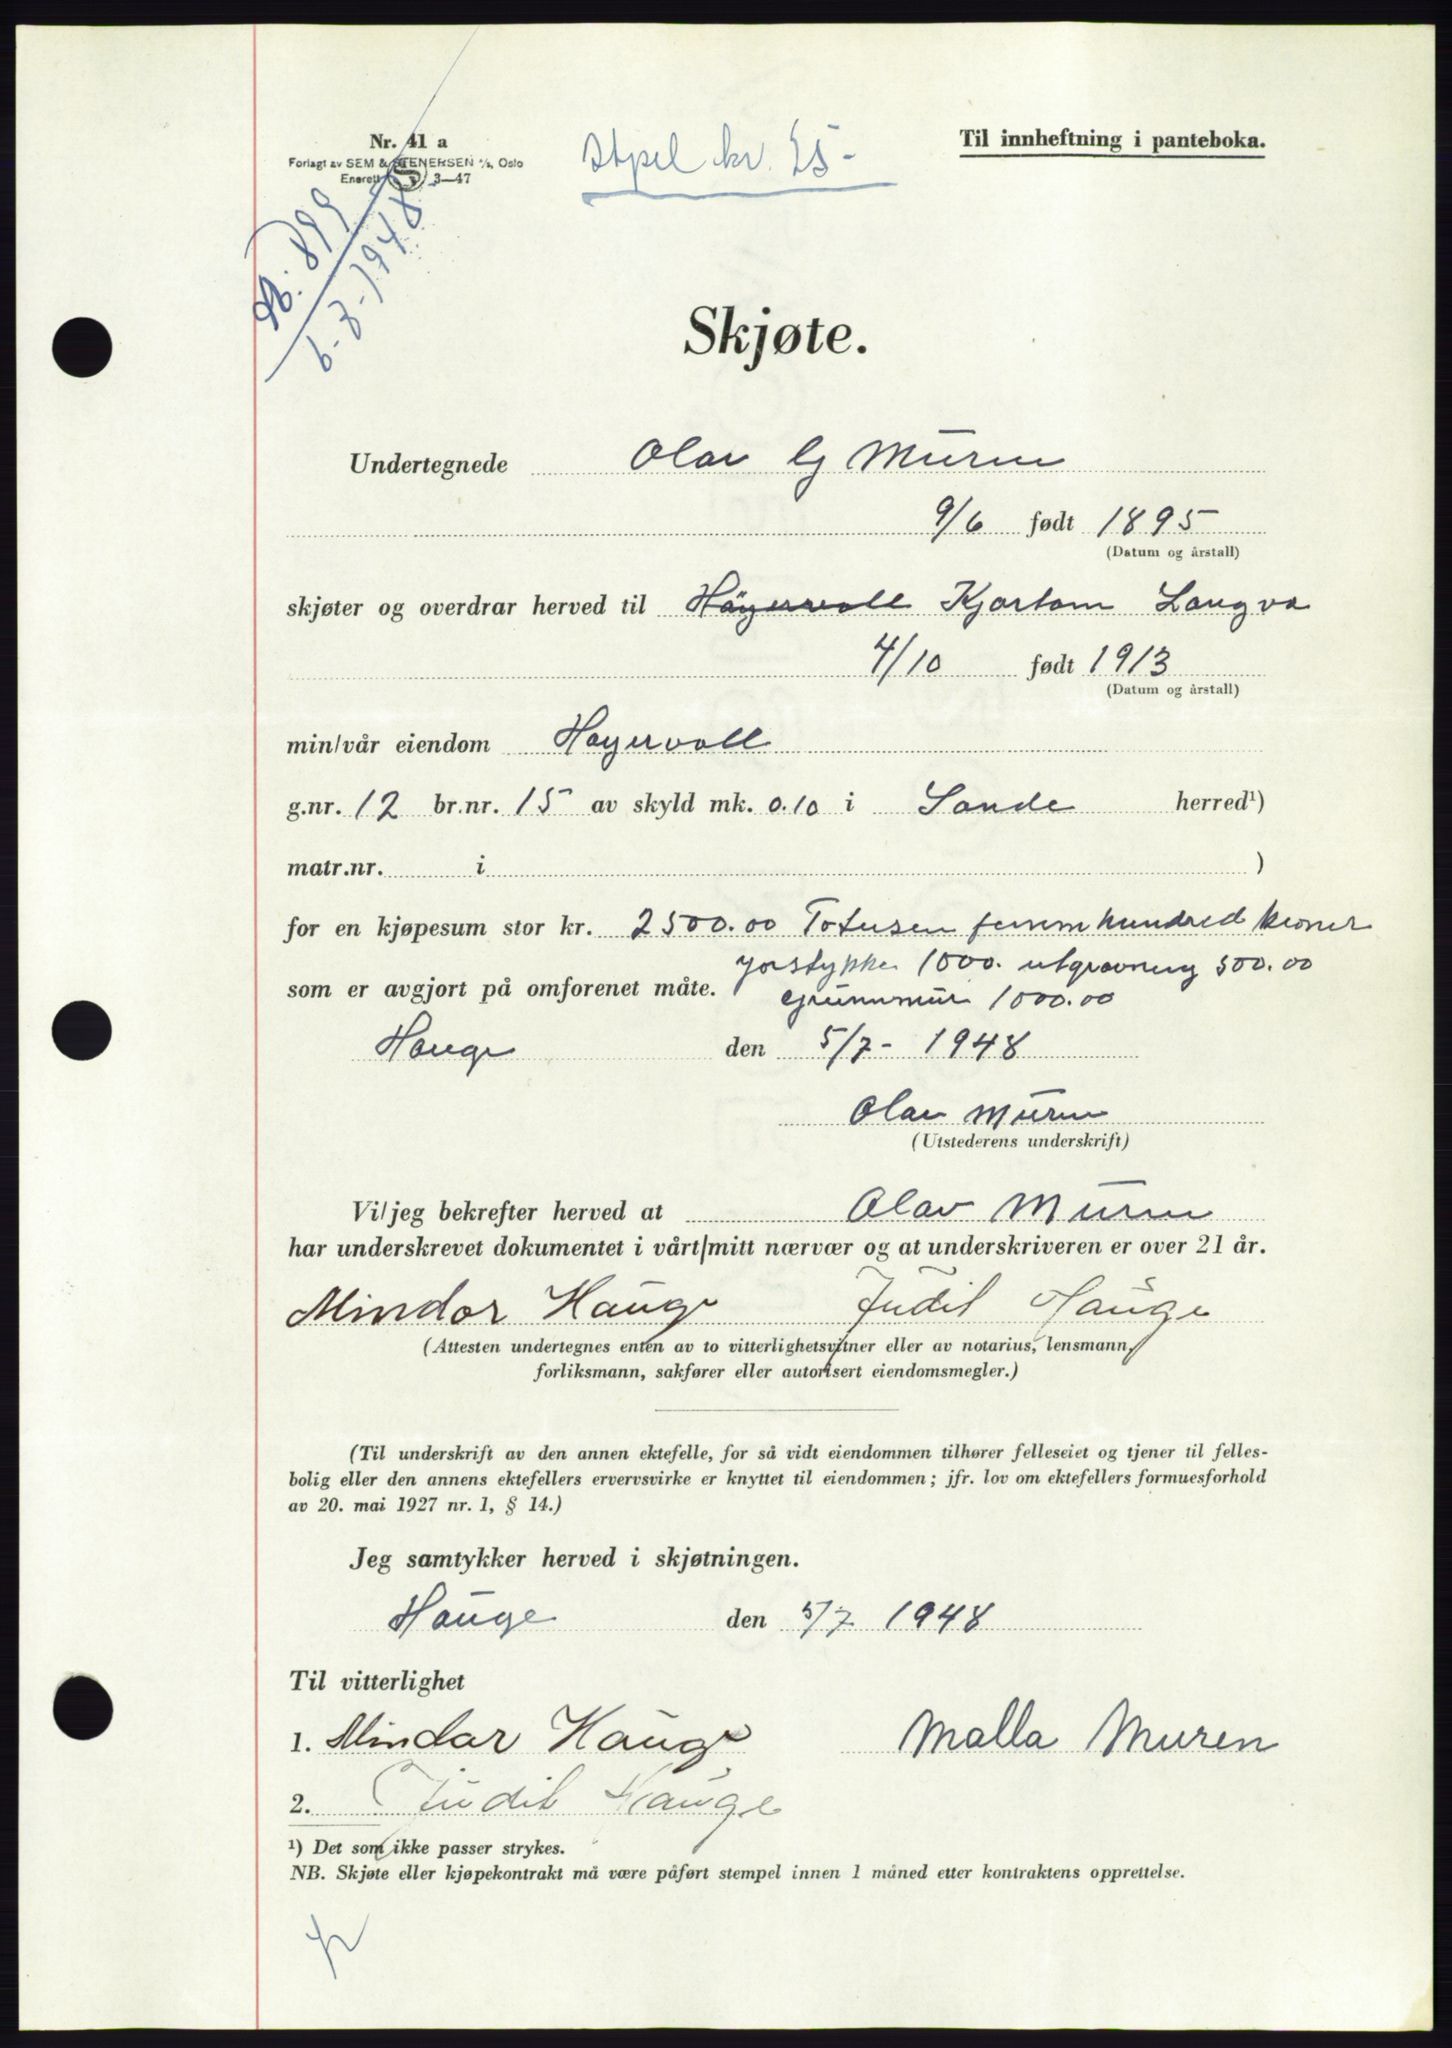 Nr. 41 a
Forlagt av SEM & STENERSEN A/S, Oslo
Enerett S 3—47
Stpel kr. 25-
Til innheftning i panteboka.
899
6-7-1948
Skjøte.
Undertegnede Olav G Muren
9/6 født 1895
(Datum og årstall)
skjøter og overdrar herved til Høyervoll Kjartan Langva
4/10 født 1913
(Datum og årstall)
min/vår eiendom Høyervoll
g.nr. 12 br.nr. 15 av skyld mk. 0.10 i Sande herred¹)
matr.nr. i )
for en kjøpesum stor kr. 2500.00 Totusen femmhundred kroner
som er avgjort på omforenet måte. Jorstykke 1000. utgravning 500.00
Grunnmur 1000.00
Hauge den 5/7- 1948
Olav Muren
(Utstederens underskrift)
Vi/jeg bekrefter herved at Olav Muren
har underskrevet dokumentet i vårt/mitt nærvær og at underskriveren er over 21 år.
Mindor Hauge Judit Hauge
(Attesten undertegnes enten av to vitterlighetsvitner eller av notarius, lensmann,
forliksmann, sakfører eller autorisert eiendomsmegler.)
(Til underskrift av den annen ektefelle, for så vidt eiendommen tilhører felleseiet og tjener til felles-
bolig eller den annens ektefellers ervervsvirke er knyttet til eiendommen; jfr. lov om ektefellers formuesforhold
av 20. mai 1927 nr. 1, § 14.)
Jeg samtykker herved i skjøtningen.
Hauge den 5/7 1948
Til vitterlighet
1. Mindor Hauge Malla Muren
2. Judit Hauge
¹) Det som ikke passer strykes.
NB. Skjøte eller kjøpekontrakt må være påført stempel innen 1 måned etter kontraktens opprettelse.